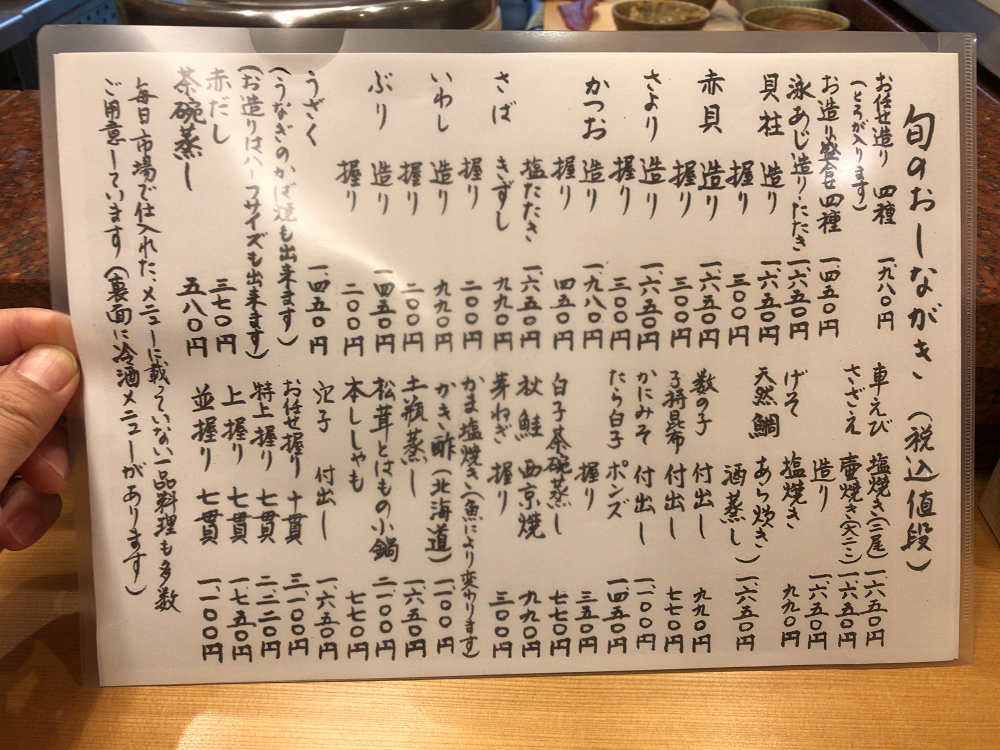 旬のおしながき（税込値段）
お任せ造り 四種 一、九八〇円
（とろが入ります）
お造り盛合せ四種 一、四五〇円
泳あじ造り・たたき 一、六五〇円
貝柱 造り 一、六五〇円
握り 三〇〇円
赤貝 造り 一、六五〇円
握り 三〇〇円
さより 造り 一、六五〇円
握り 三〇〇円
かつお 造り 一、九八〇円
握り 四五〇円
塩たたき 一、六五〇円
さば きずし 九九〇円
握り 二〇〇円
いわし 造り 九九〇円
握り 二〇〇円
ぶり 造り 一、四五〇円
握り 二〇〇円
うざく 一、四五〇円
（うなぎのかば焼も出来ます）
（お造りはハーフサイズも出来ます）
赤だし 三七〇円
茶碗蒸し 五八〇円
車えび 塩焼き（二尾） 一、六五〇円
さざえ 壷焼き（大二ニ） 一、六五〇円
造り 一、六五〇円
げそ 塩焼き 九九〇円
天然鯛 あら炊き
酒蒸し 一、六五〇円
数の子 付出し 九九〇円
子持昆布 付出し 七七〇円
かにみそ 付出し 一、一〇〇円
たら白子 ポンズ 一、四五〇円
握り 三五〇円
白子茶碗蒸し 七七〇円
秋鮭 西京焼 九九〇円
芽ねぎ 握り 三〇〇円
かま塩焼き（魚により変わります）
かき酢（北海道） 一、一〇〇円
土瓶蒸し 一、六五〇円
松茸とはもの小鍋 二、一〇〇円
本ししゃも 七七〇円
穴子 付出し 一、六五〇円
お任せ握り 十貫 三、一〇〇円
特上握り 七貫 二、二〇〇円
上握り 七貫 一、七五〇円
並握り 七貫 一、一〇〇円
毎日市場で仕入れた、メニューに載っていない一品料理も多数
ご用意しています（裏面に冷酒メニューがあります）